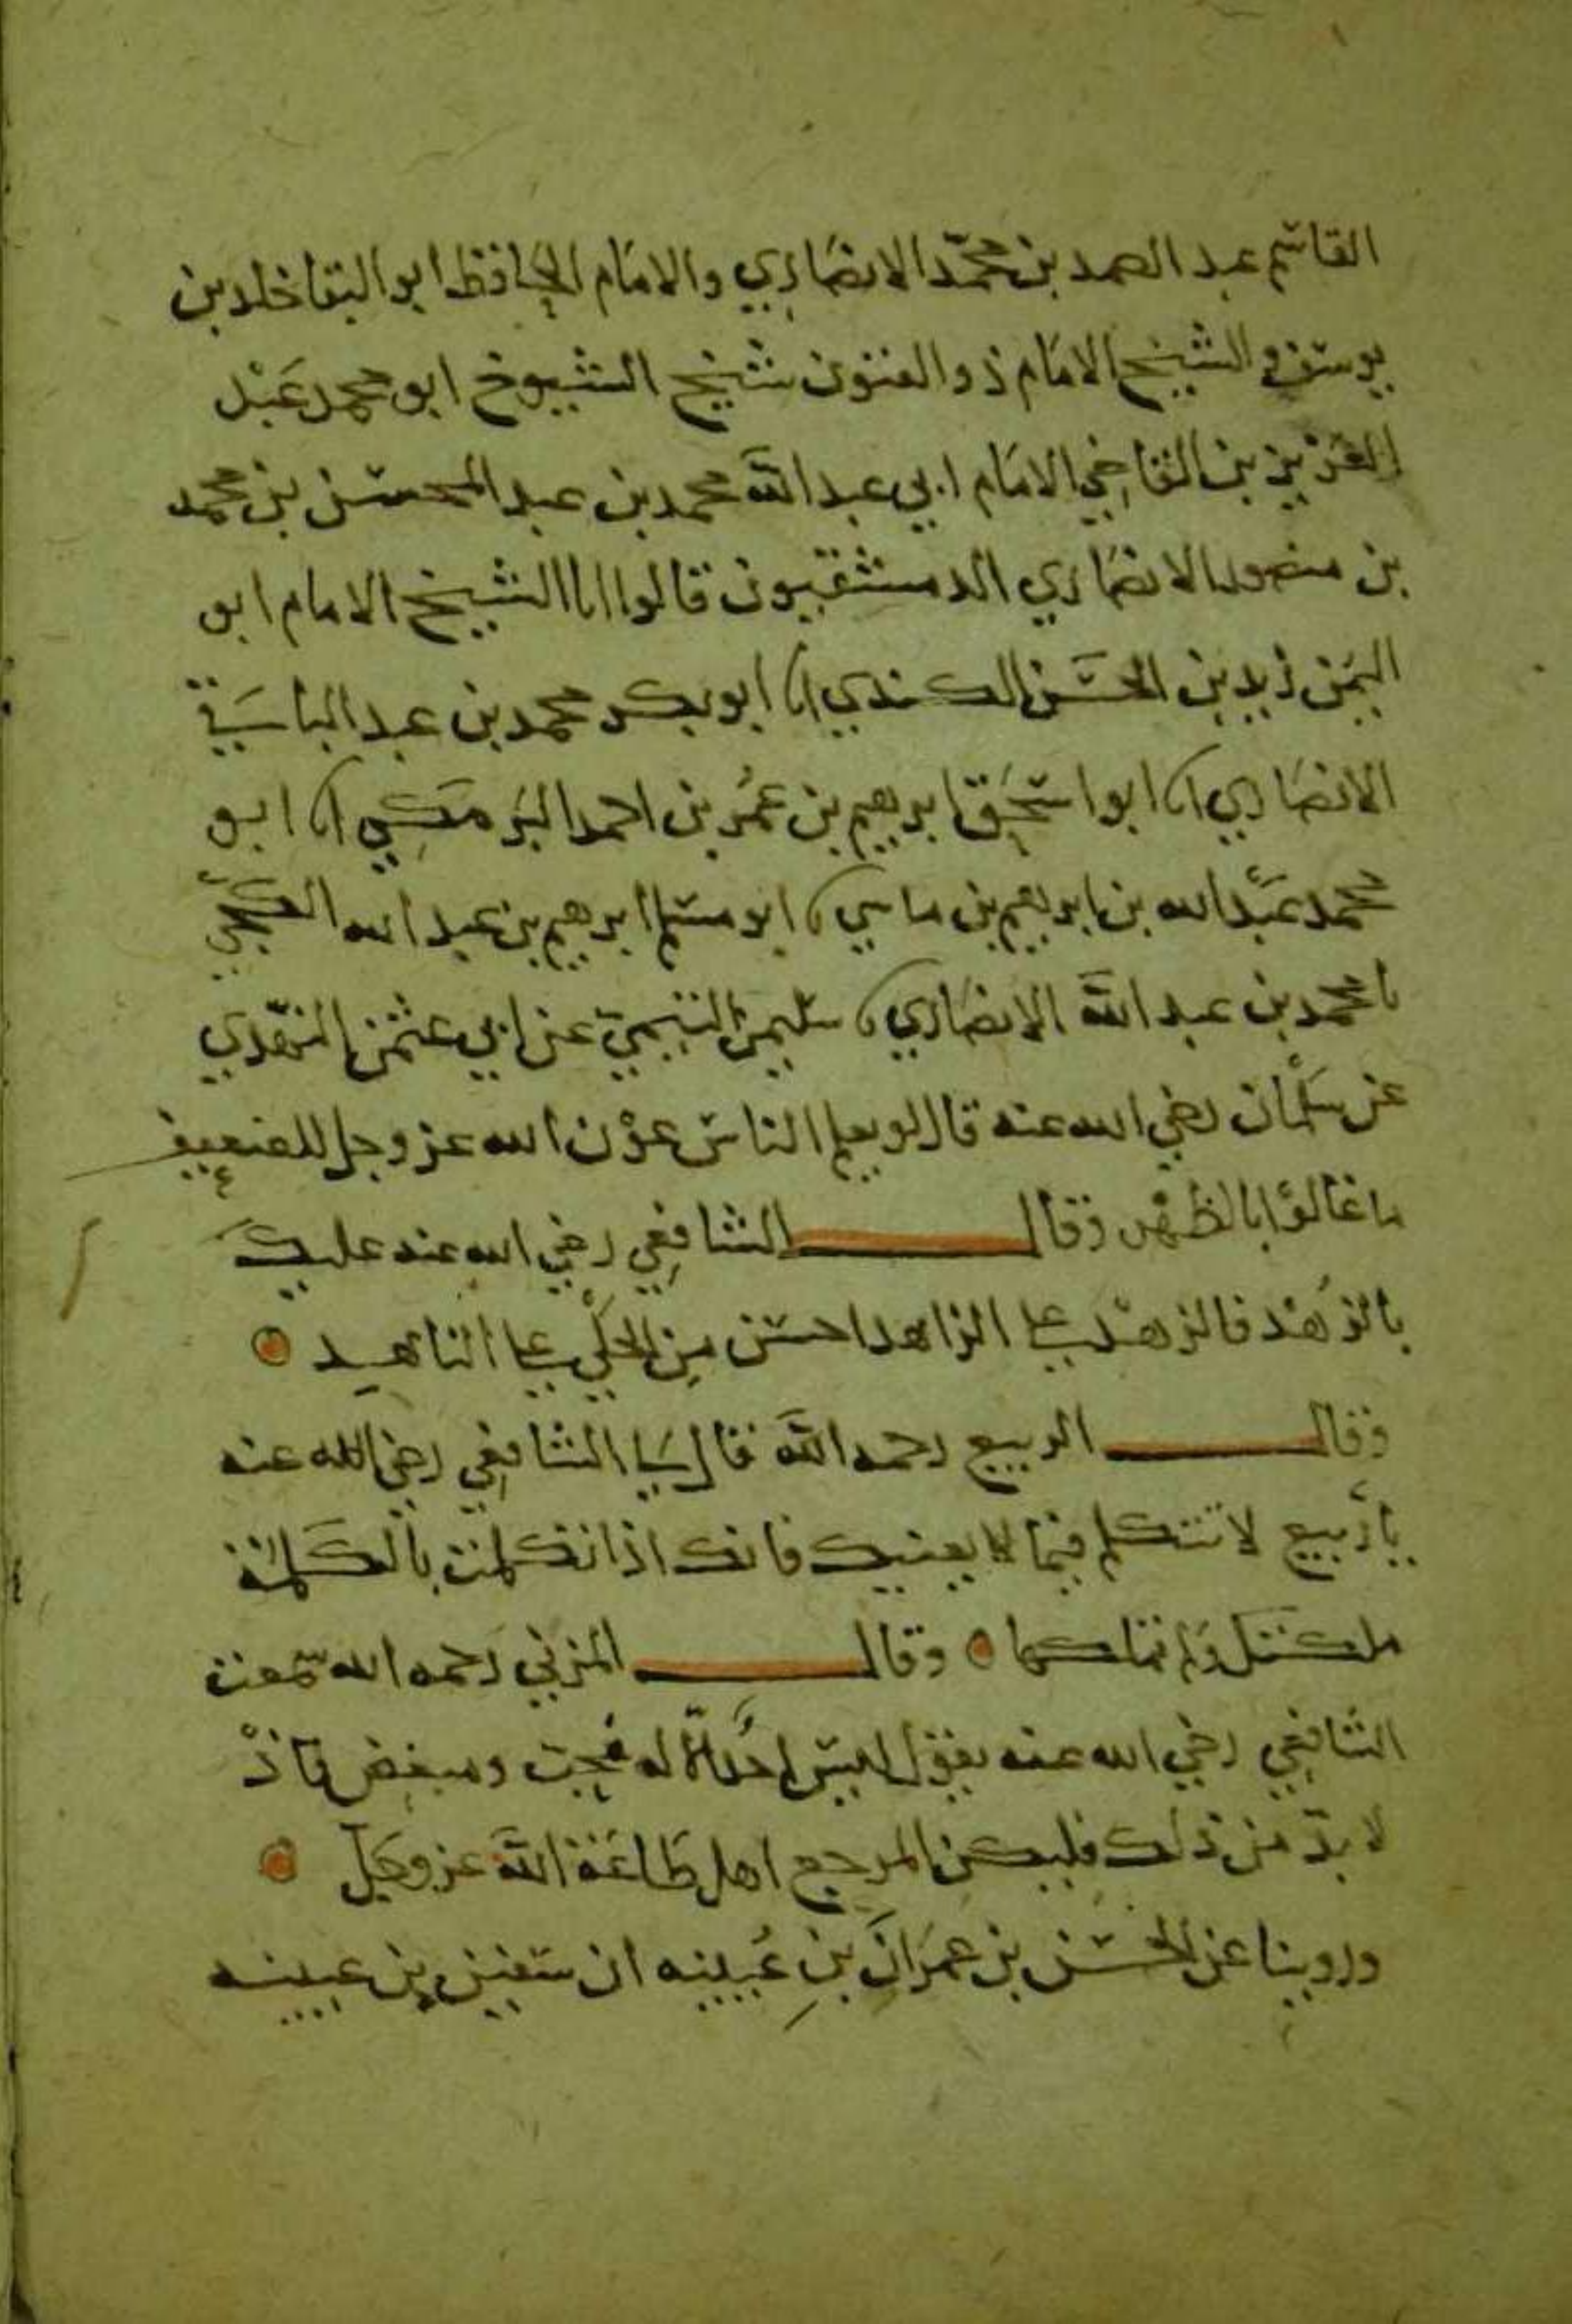 القاسم عبد الصمد بن محمّد الانصاري والامام الحافظ ابو البقا خلد بن
يوسف والشيخ الامام ذو الفنون شيخ الشيوخ ابو محمد عَبْد
العزيز بن القاضي الامام ابي عبد الله محمد بن عبد المحسن بن محمد
بن منصور الانصاري الدمشقيون قالوا انا الشيخ الامام ابو
اليمن زيد بن الحسَن الكندي انا ابو بكر محمد بن عبد الباقي
الانصاري انا ابو اسحٰق ابرهيم بن عُمر بن احمد البَرمَكِي انا ابو
محمد عَبْد الله بن ابرهيم بن ماسي نا ابو مسلم ابرهيم بن عبد الله الكَجّيّ
نا محمد بن عبد الله الانصاري نا سليمن التيمي عن ابي عثمن النهدي
عن سَلْمان رضي الله عنه قال لو يعلم الناس عوْن الله عز وجل للضعيف
ما غالوْا بالظهْر وقال الشافِعي رضي الله عنه عليكَ
بالزُهْد فالزهْد على الزاهد احسن مِن الحَلْي على الناهد
وقال الربيع رحمه الله قال لي الشافِعي رضي الله عنه
يا رَبيع لا تتكلم فيما لا يعنيك فانك اذا تكلمت بالكَلمة
ملكتك ولم تملكها وقال المزني رَحمه الله سَمعت
الشافعي رضي الله عنه يقول ليس احَد الّا له مُحِب ومبغض فاذْ
لا بدّ من ذلك فليكن المرجع اهل طَاعَة الله عز وجَل
وروينا عن الحسَن بن عمرَان بنِ عُيينه ان سَفين بن عيينه